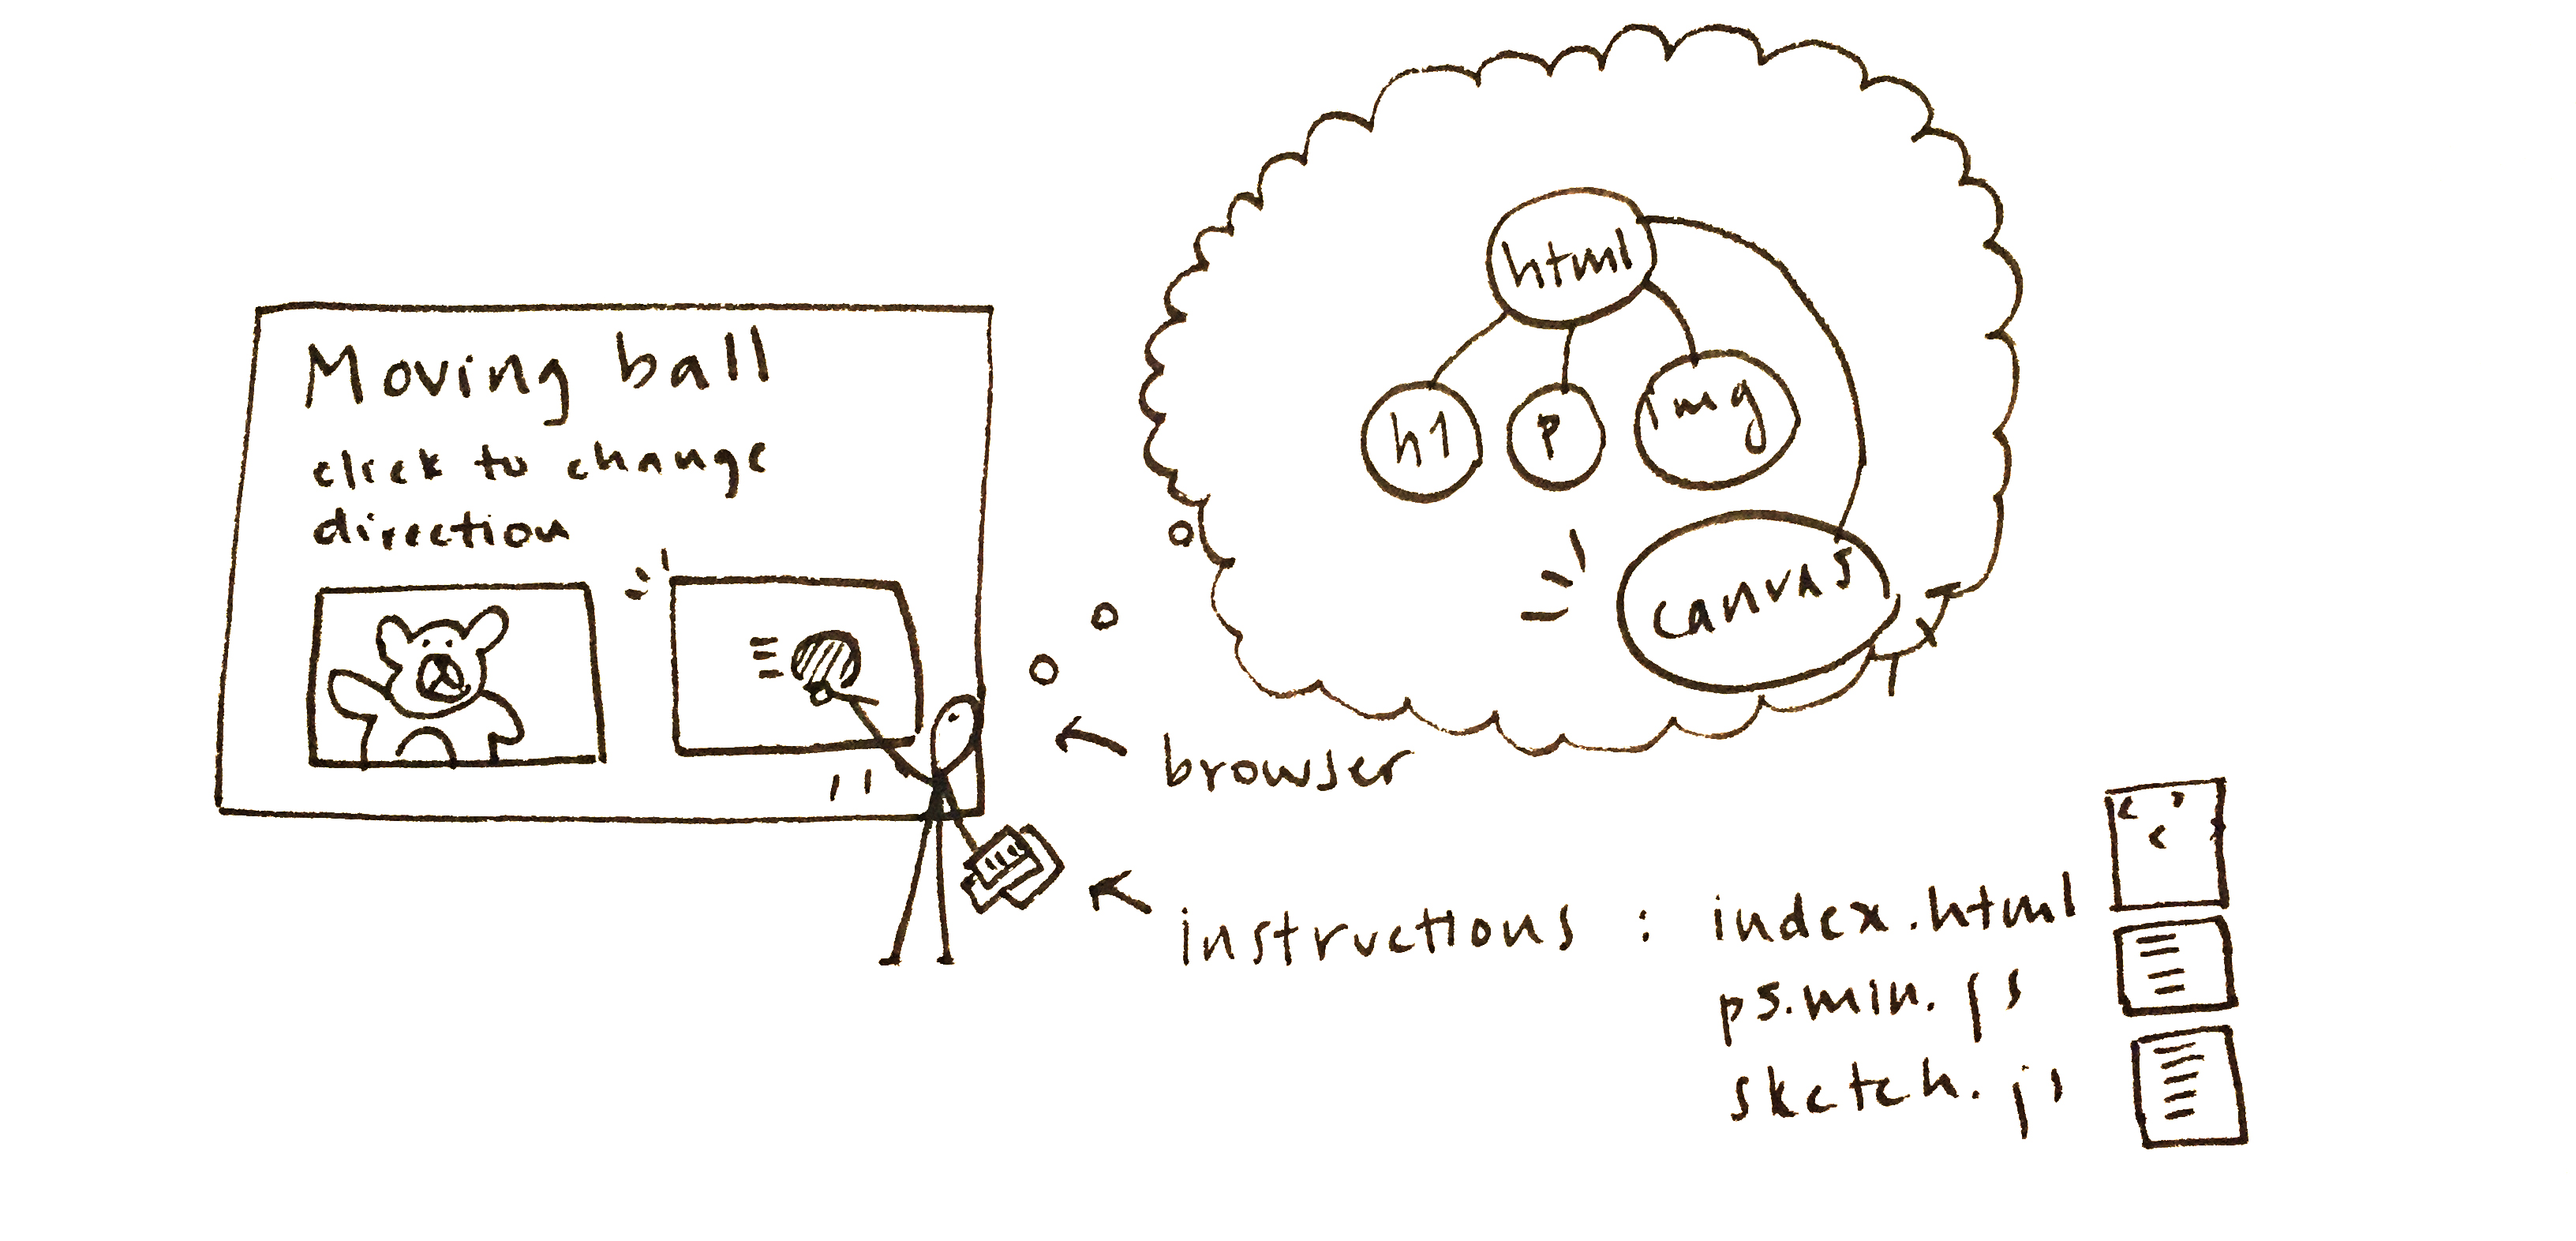 Moving ball
click to change
direction
html
h1
p
img
canvas
browser
instructions : index.html
p5.min.js
sketch.js